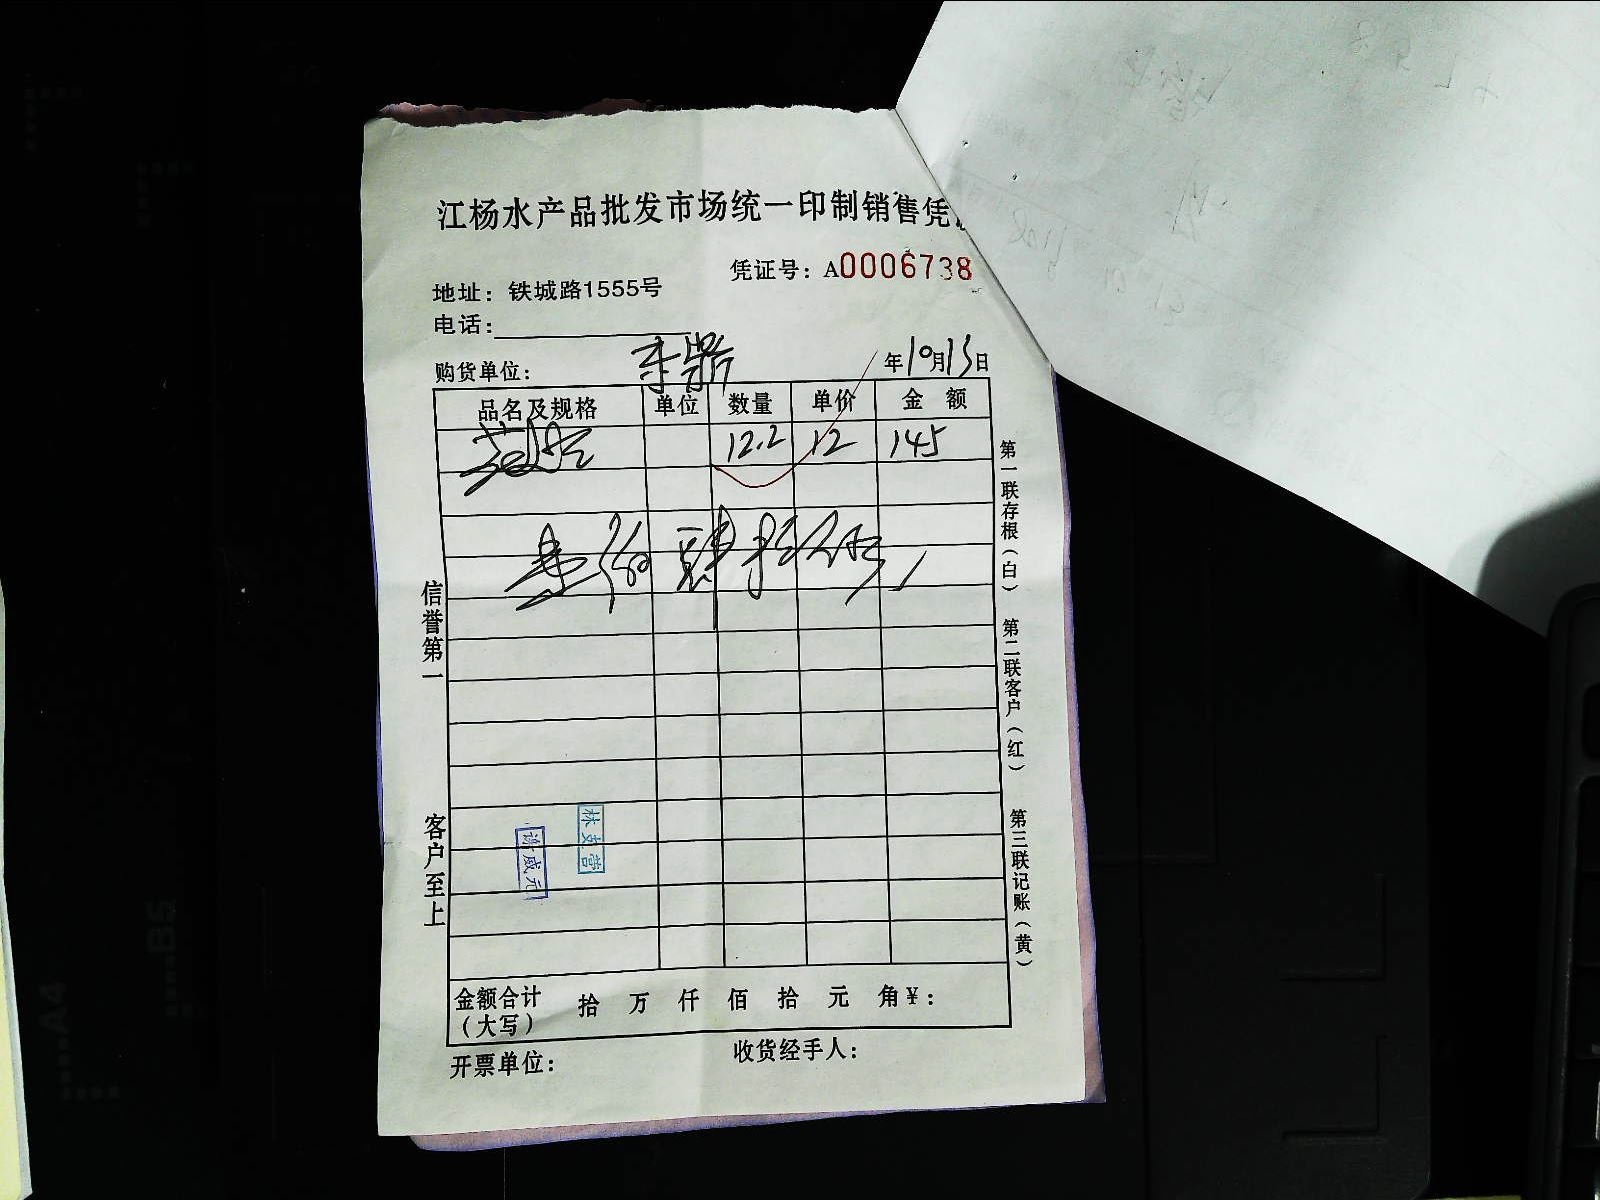 江杨水产品批发市场统一印制销售凭
凭证号：A0006738
地址：铁城路1555号
电话：
购货单位： 年10月13日
品名及规格 单位 数量 单价 金额
12.2 12 145
壹佰肆拾伍元
信誉第一
客户至上
第一联存根（白）
第二联客户（红）
第三联记账（黄）
谢威元
金额合计（大写） 拾 万 仟 佰 拾 元 角 ¥：
开票单位： 收货经手人：